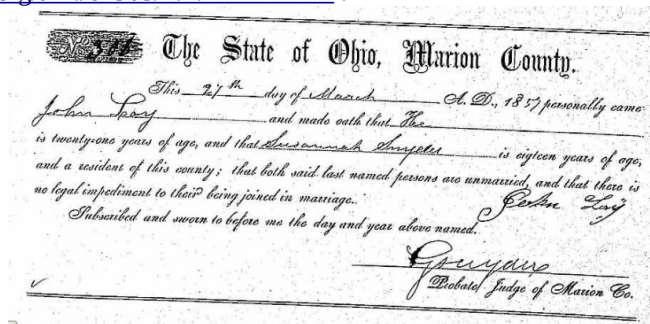 The State of Ohio, Marion County.
This 27th day of March A. D., 1857 personally came
John Loy and made oath that He
is twenty-one years of age, and that Susannah Snyder is eigteen years of age,
and a resident of this county; that both said last named persons are unmarried, and that there is
no legal impediment to their being joined in marriage.
John Loy
Subscribed and sworn to before me the day and year above named.
Probate Judge of Marion Co.